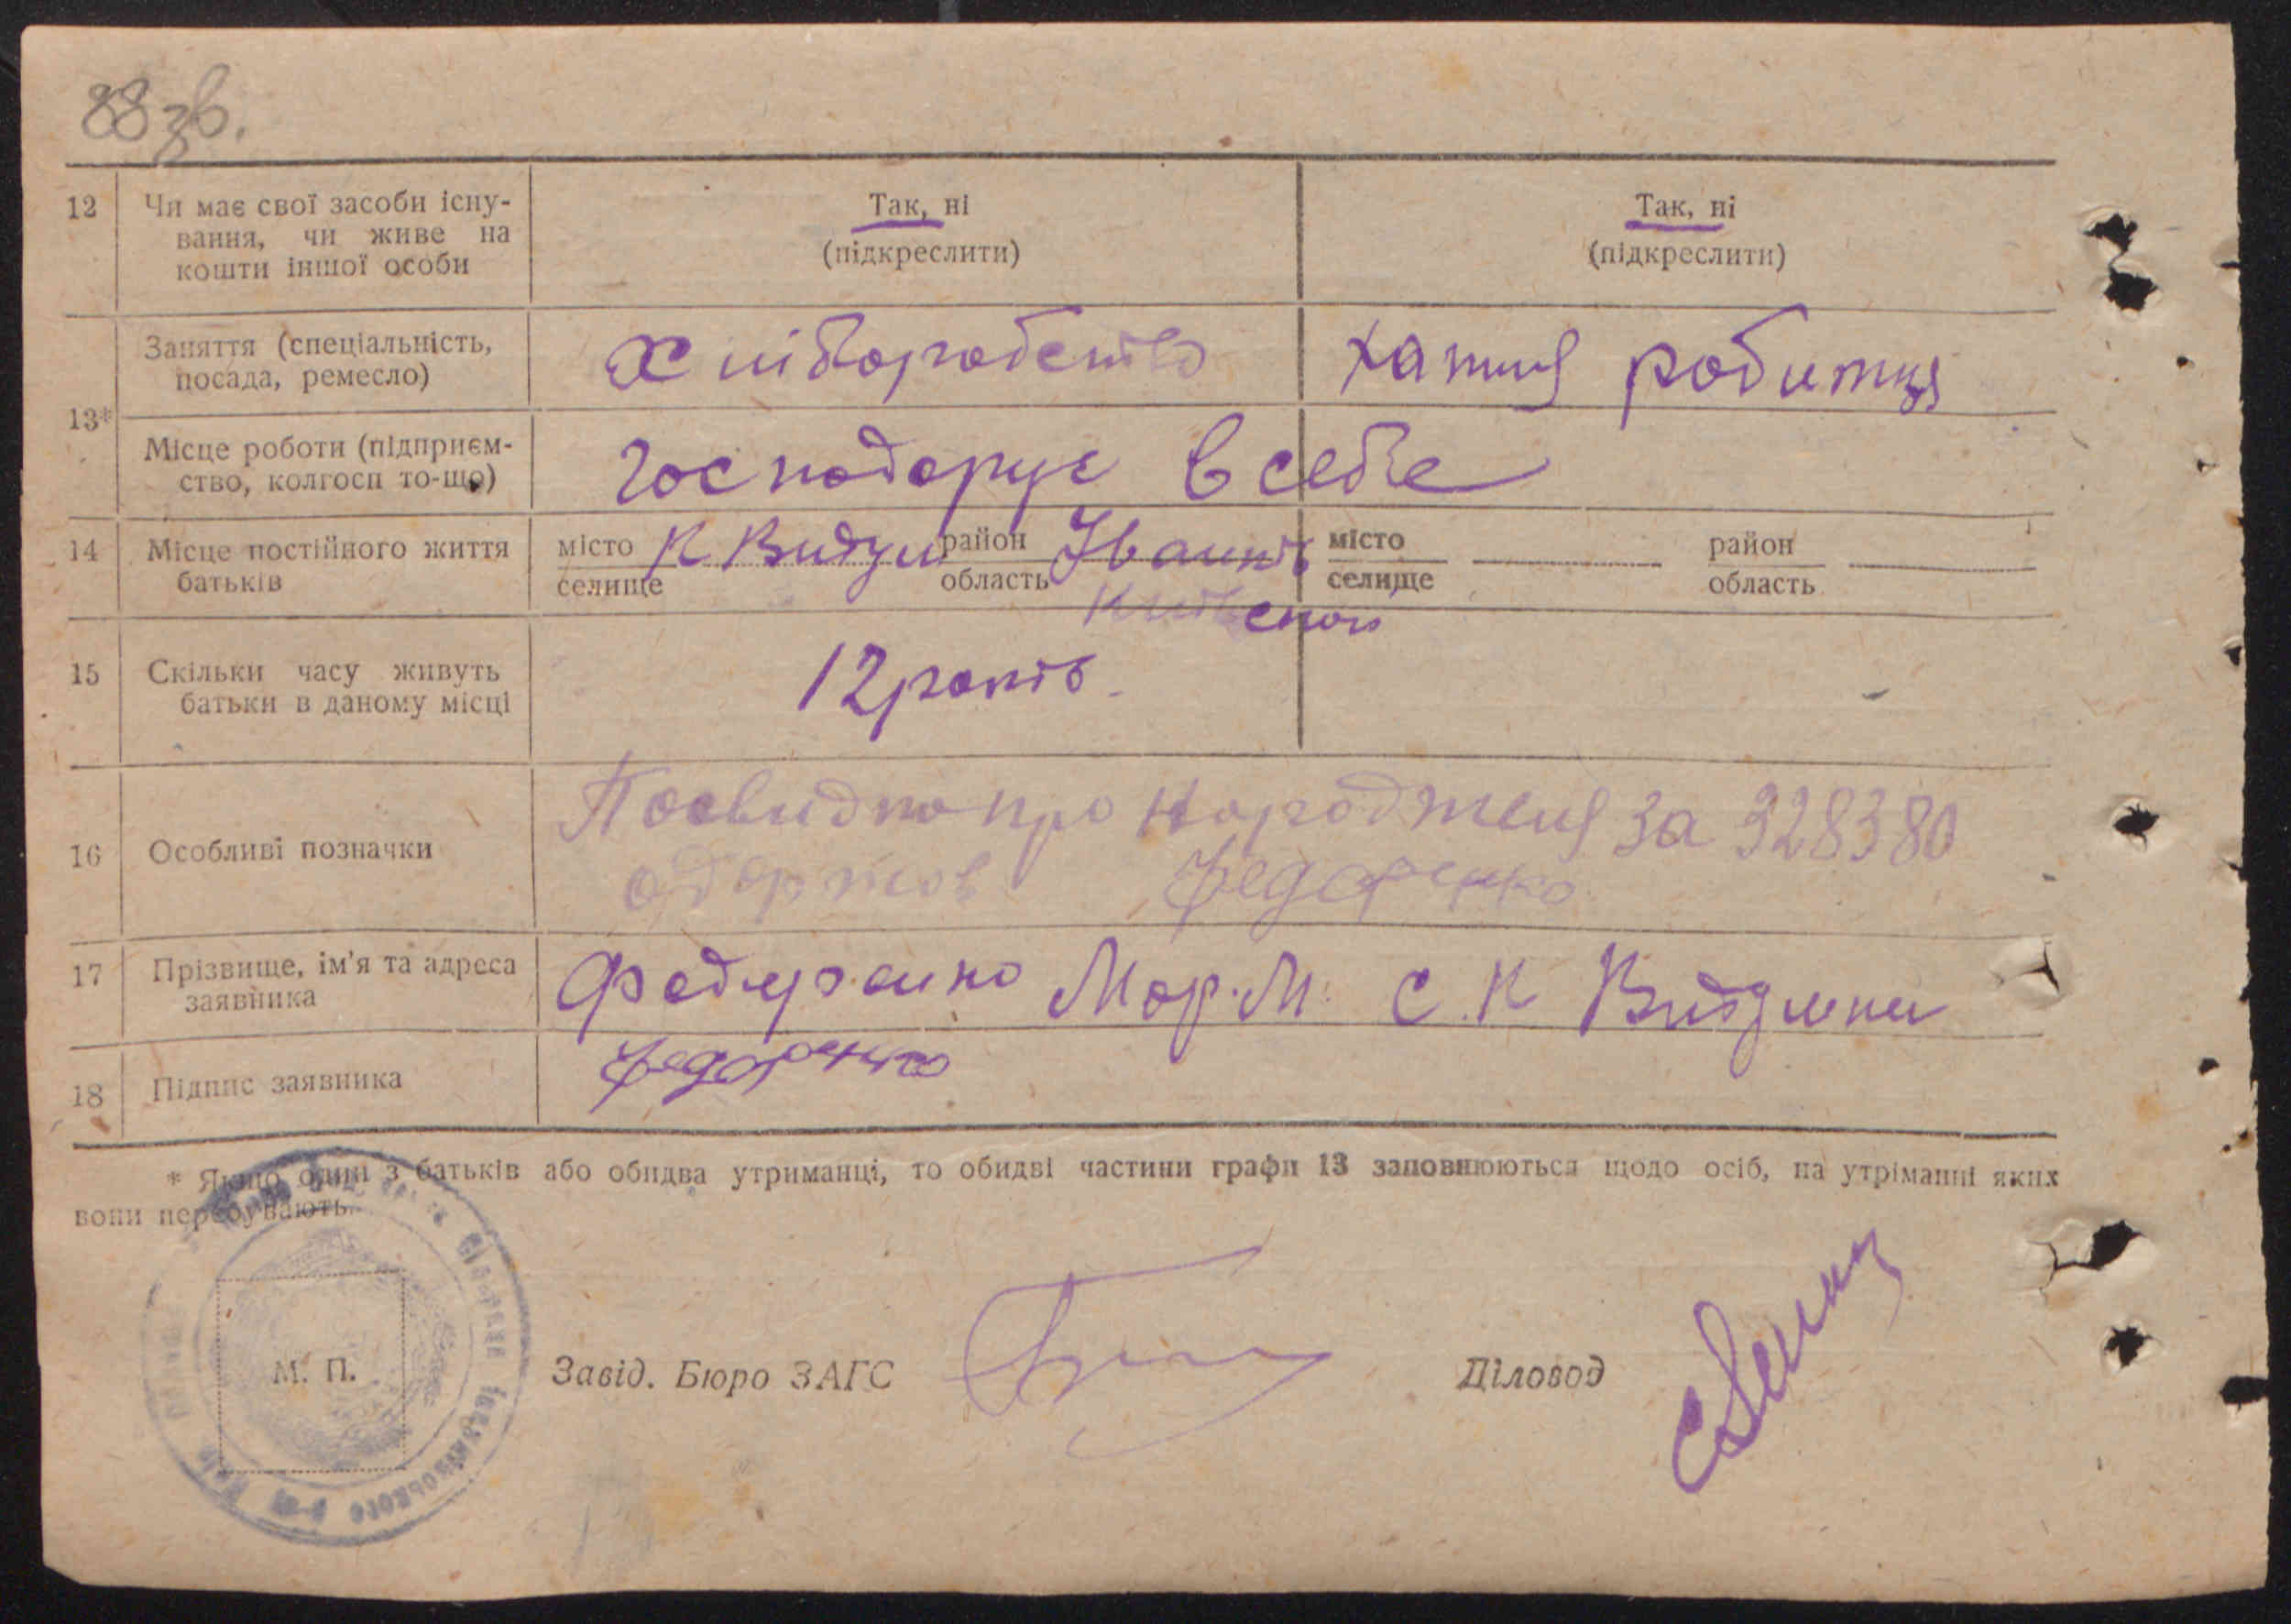 88 зв.
12 Чи має свої засоби існу-
вання, чи живе на
кошти іншої особи
Так, ні
(підкреслити)
Так, ні
(підкреслити)
13*
Заняття (спеціальність,
посада, ремесло)
Хліборобство
хатня робитця
Місце роботи (підприєм-
ство, колгосп то-що)
Господарує в себе
14 Місце постійного життя
батьків
місто
селище
район
область
місто
селище
район
область
15 Скільки часу живуть
батьки в даному місці
12 років
16 Особливі позначки
Посвидко про народженя за 328380
одержов Федоренко
17 Прізвище, ім'я та адреса
заявника
Федуренко Мар. М. С. К
18 Підпис заявника
Федоренко
* Якщо один з батьків або обидва утриманці, то обидві частини графи 13 заповнюються щодо осіб, на утріманні яких
вони перебувають.
М. П.
Завід. Бюро ЗАГС
Діловод